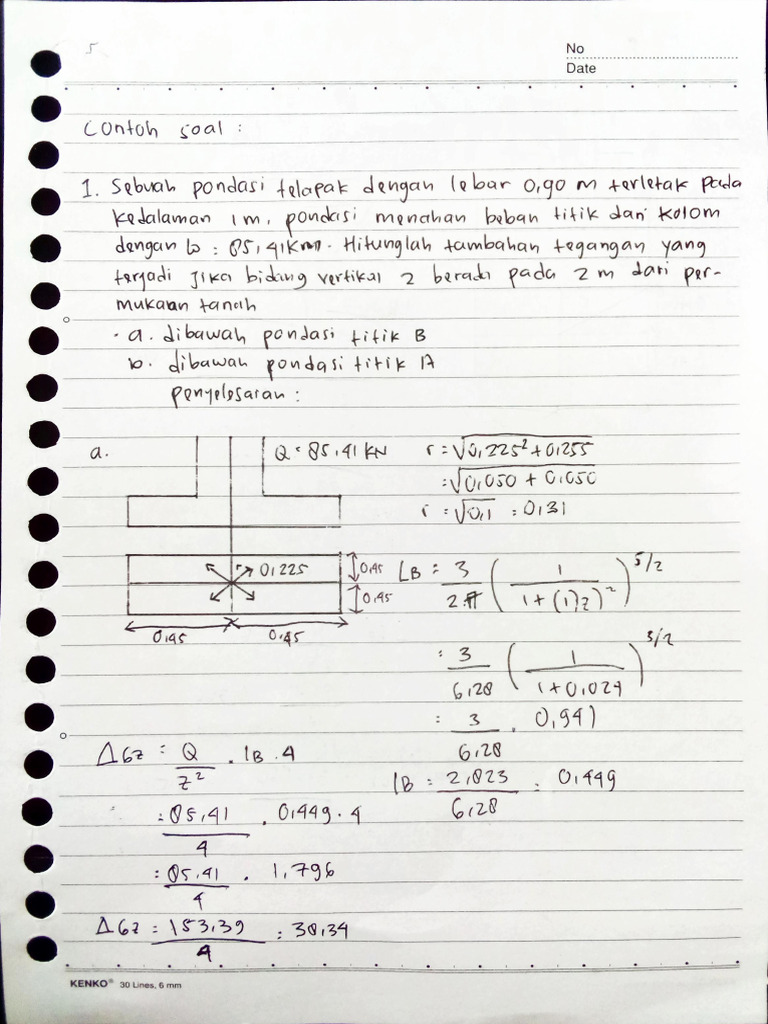 5
No
Date
Contoh soal :
1. Sebuah pondasi telapak dengan lebar 0,90 m terletak pada
kedalaman 1m, pondasi menahan beban titik dari kolom
dengan b : 85,41 km. Hitunglah tambahan tegangan yang
terjadi jika bidang vertikal 2 berada pada 2 m dari per-
mukaan tanah
· a. dibawah pondasi titik B
b. dibawah pondasi titik A
penyelesaran :
a.
Q = 85,41 KN
r = √0,225² + 0,255
= √0,050 + 0,050
r = √0,1 = 0,31
r 0,225
0,45
0,45
0,45 0,45
IB = 3/2.π (1/1+(1)z)²)5/2
= 3/6,28 (1/1+0,024)3/2
= 3/6,28 . 0,941
IB = 2,823/6,28 = 0,449
Δ6z = Q/z² . IB . 4
= 85,41/4 . 0,449 . 4
= 85,41/4 . 1,796
Δ6z = 153,39/4 = 38,34
KENKO® 30 Lines, 6 mm